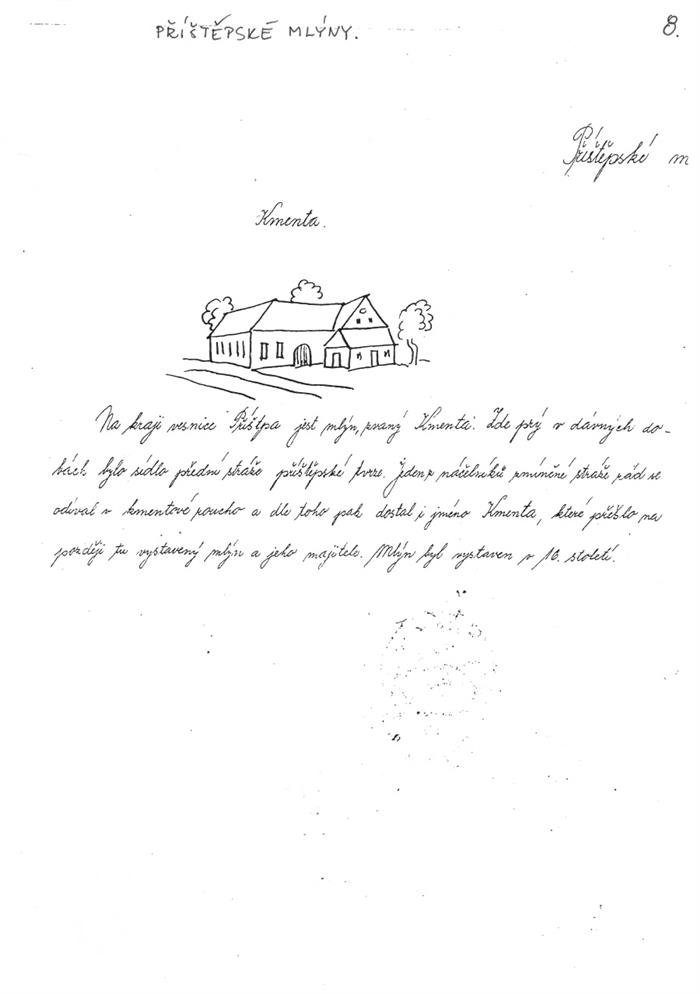 PŘÍŠTĚPSKÉ MLÝNY.
8.
Příštěpské m
Kmenta.
Na kraji vesnice Příštpa jest mlýn, zvaný Kmenta. Zde prý v dávných do-
bách bylo sídlo přední stráže příštěpské tvrze. Jeden z náčelníků zmíněné stráže rád se
odíval v kmentové roucho a dle toho pak dostal i jméno Kmenta, které přešlo na
později tu vystavený mlýn a jeho majitele. Mlýn byl vystaven v 16. století.